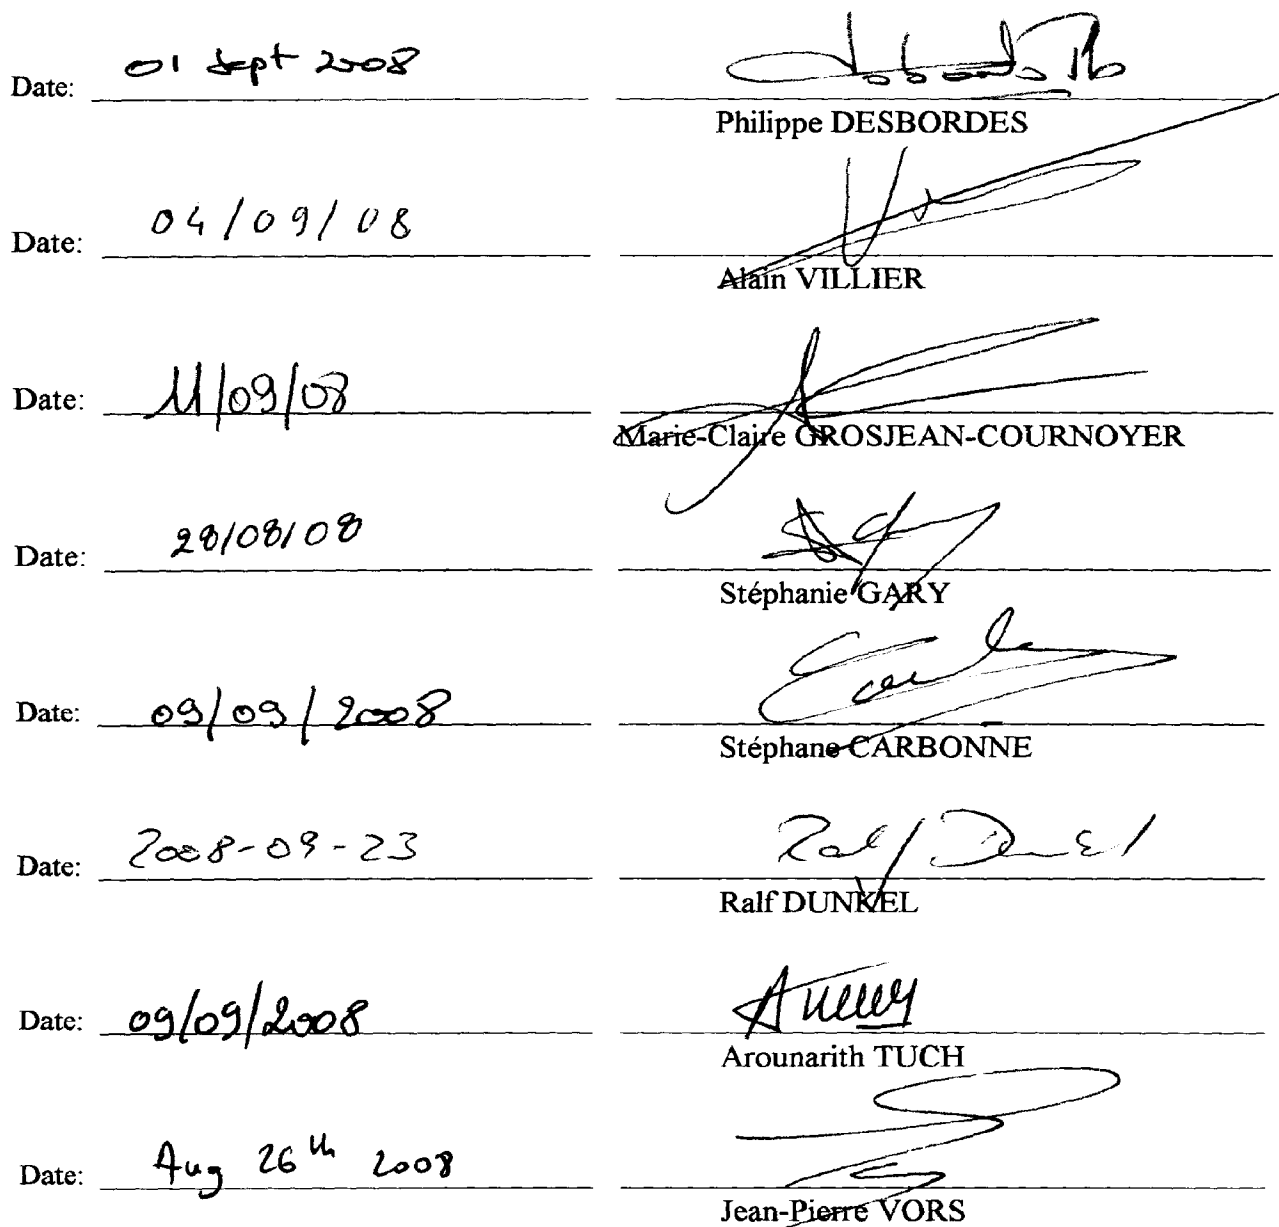 Date: 01 Sept 2008
Philippe DESBORDES
Date: 04/09/08
Alain VILLIER
Date: 11/09/08
Marie-Claire GROSJEAN-COURNOYER
Date: 28/08/08
Stéphanie GARY
Date: 09/09/2008
Stéphane CARBONNE
Date: 2008-09-23 Ralf Dunkel
Ralf DUNKEL
Date: 09/09/2008
Arounarith TUCH
Date: Aug 26th 2008
Jean-Pierre VORS